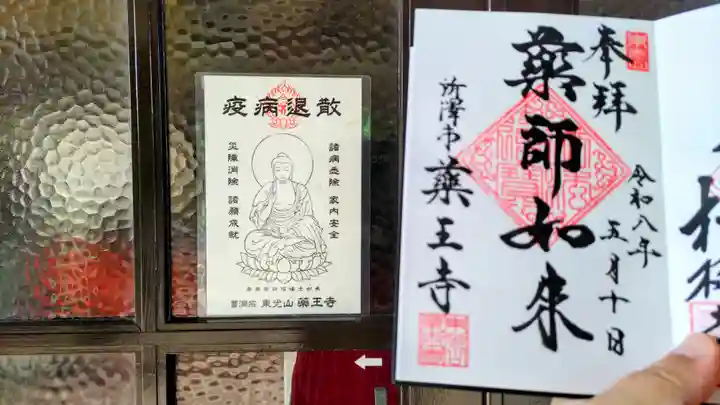 疫病退散
諸病悉除 家内安全
災障消除 諸願成就
曹洞宗 東光山 薬王寺
奉拝
薬師如来
令和八年 五月十日
所澤市 薬王寺